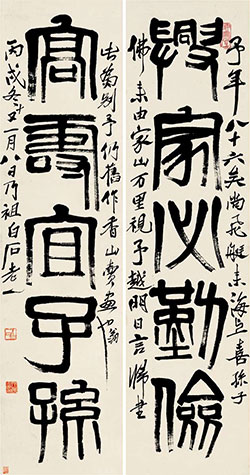 興家必勤儉
予年八十六矣尚飛艇來海上喜孫子
佛來由家山萬里視予越明日言歸書
高壽宜子孫
此為別予
作香山
畫翁
丙戌冬十又一月八日乃祖白石老人